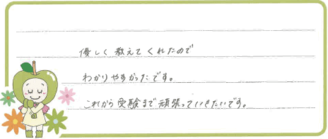 優しく教えてくれたので
わかりやすかったです。
これから受験まで頑張っていきたいです。